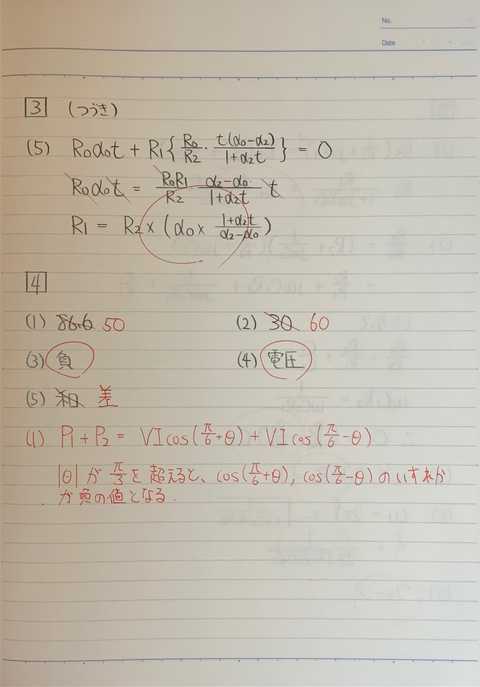 No.
Date
3 (つづき)
(5) R₀α₀t + R₁{R₀/R₂・t(α₀-α₂)/1+α₂t} = 0
R₀α₀t = R₀R₁/R₂ α₂-α₀/1+α₂t t
R₁ = R₂×(α₀×1+α₂t/α₂-α₀)
4
(1) 86.6 50 (2) 30 60
(3) 負 (4) 電圧
(5) 和 差
(1) P₁ + P₂ = VI cos(π/6+θ) + VI cos(π/6-θ)
|θ| が π/3 を超えると、cos(π/6+θ), cos(π/6-θ) のいずれか
が負の値となる.